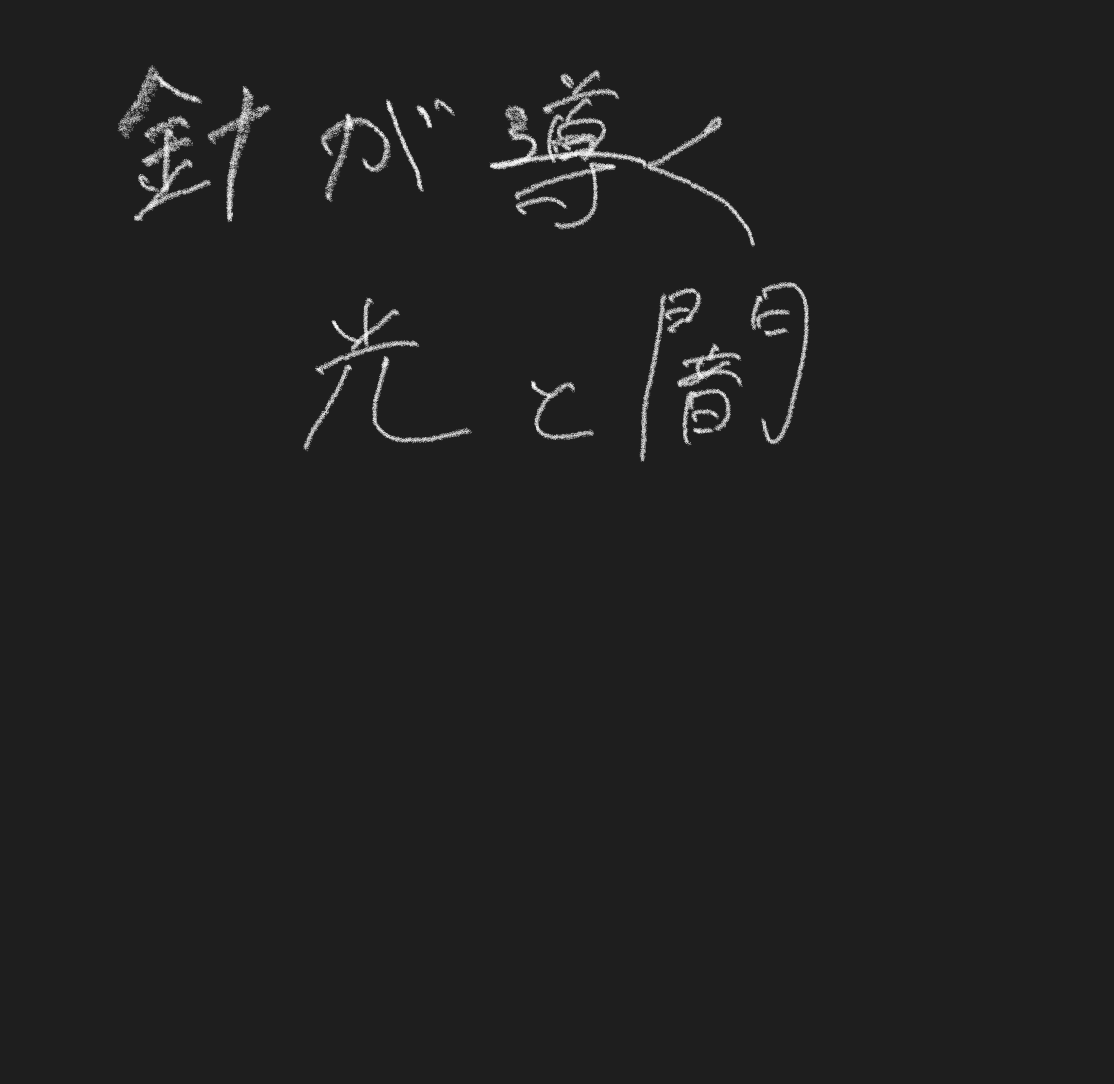 針が導く
光と闇